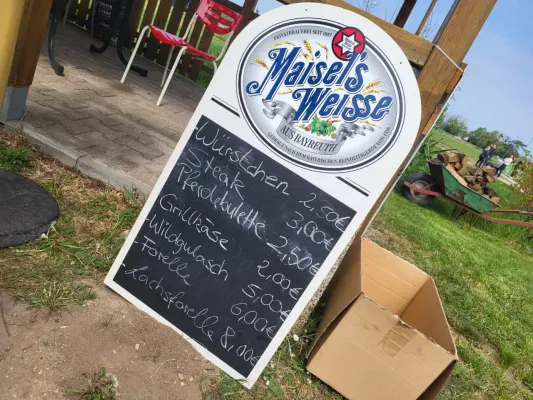 PRIVATBRAUEREI SEIT 1887
Maisel's
Weisse
AUS BAYREUTH
GEBRAUT NACH DEM BAYERISCHEN REINHEITSGEBOT VON 1516
Würstchen 2,50€
Steak 3,00€
Pferdebulette 2,50€
Grillkäse 2,00€
- Wildgulasch 5,00€
- Forelle 6,00€
- Lachsforelle 8,00€